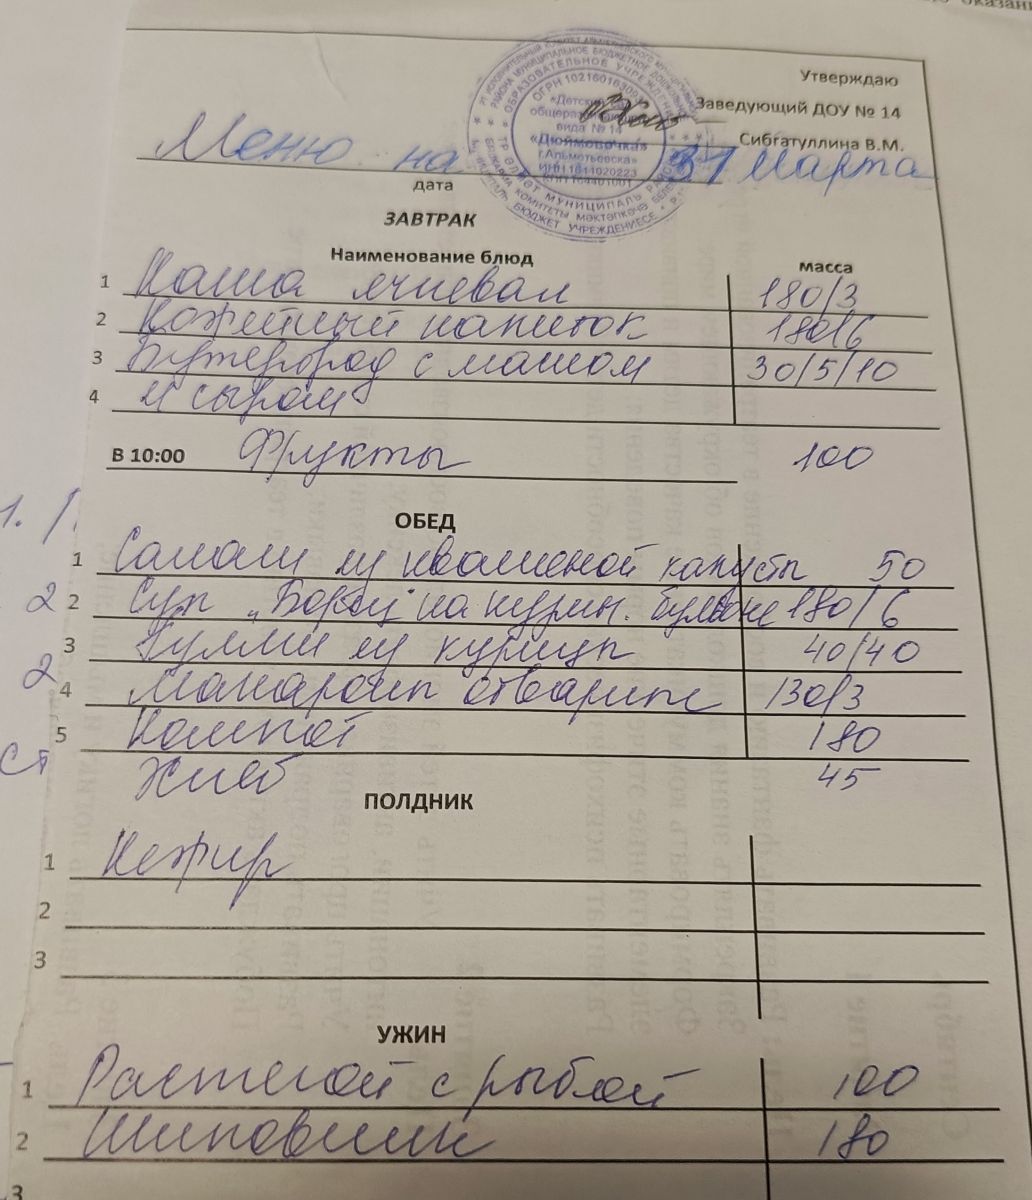 Утверждаю
Заведующий ДОУ № 14
Сибгатуллина В.М.
Меню на 31 Марта
дата
ОГРН 1021601630
«Детский
вида № 14
«Дюймовочка»
г.Альметьевска»
ИНН 1611020223
КПП 164401001
ЗАВТРАК
Наименование блюд масса
1 Каша ячневая 180/3
2 Кофейный напиток 180/6
3 Бутерброд с маслом 30/5/10
4 и сыром
В 10:00 Фрукты 100
ОБЕД
1 Салат из квашеной капусты 50
2 Суп "Борщ" на курин. бульоне 180/6
3 Гуляш из курицы 40/40
4 Макароны отварные 130/3
5 Компот 180
Хлеб 45
ПОЛДНИК
1 Кефир
2
3
УЖИН
1 Расстегай с рыбой 100
2 Шиповник 180
3